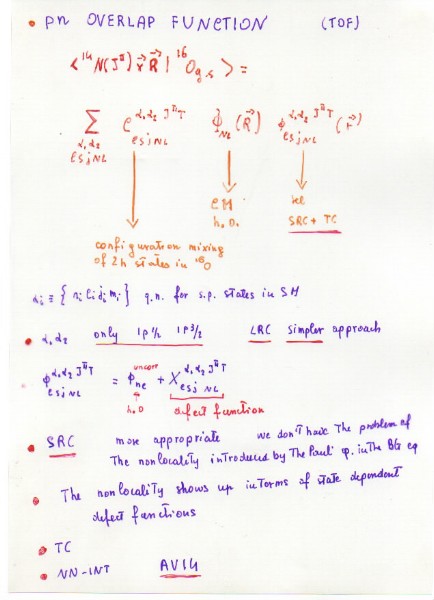 • pn OVERLAP FUNCTION (TOF)
< ¹⁴N(Jᴨ) r⃗ R⃗ | ¹⁶O g.s > =
∑ α₁α₂ ℓSjNL C α₁α₂ JᴨT ℓSjNL Φ NL (R⃗) ϕ α₁α₂ JᴨT ℓSjNL (r⃗)
CM rel
h.o. SRC + TC
configuration mixing
of 2h states in ¹⁶O
αi ≡ { ni li ji mi } q.n. for s.p. states in SM
• α₁α₂ only 1p½ 1p3/2 LRC simpler approach
uncorr
ϕ α₁α₂ JᴨT ℓSjNL = ϕ nℓ + χ α₁α₂ JᴨT ℓSjNL
h.o defect function
• SRC more appropriate we don't have the problem of
the nonlocality introduced by the Pauli op. in the BG eq
• The nonlocality shows up in terms of state dependent
defect functions
• TC
• NN-INT AV14